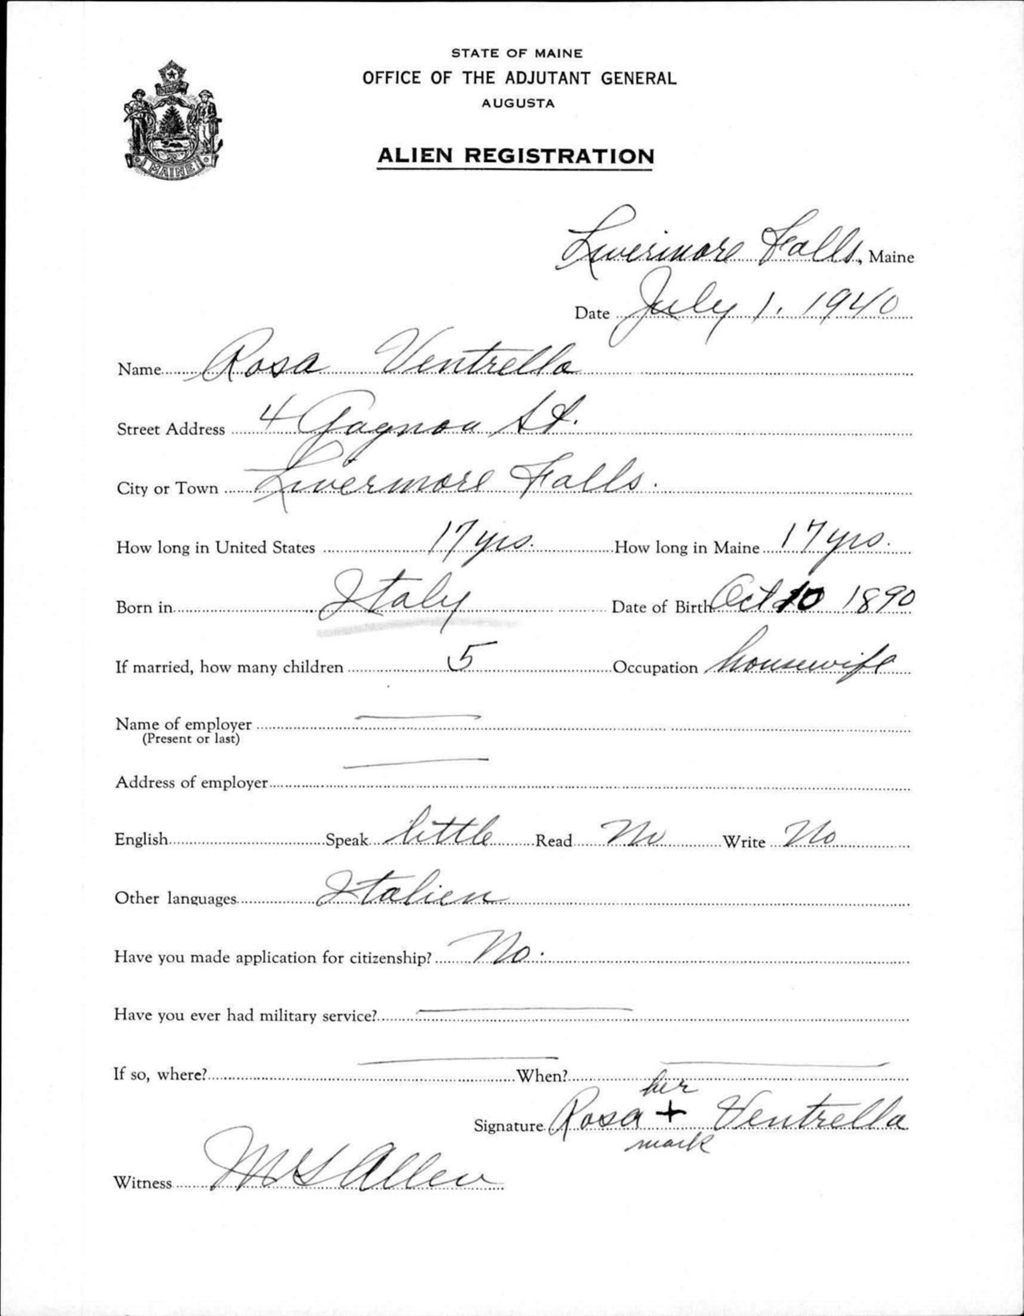 STATE OF MAINE
OFFICE OF THE ADJUTANT GENERAL
AUGUSTA
ALIEN REGISTRATION
MAINE
Livermore Falls, Maine
Date July 1. 1940
Name Rosa Ventrella
Street Address 4 Gagnon St.
City or Town Livermore Falls.
How long in United States 17 yrs. How long in Maine 17 yrs.
Born in Italy Date of Birth Oct 10 1890
If married, how many children 5 Occupation housewife
Name of employer
(Present or last)
Address of employer
English Speak little Read No Write No
Other languages Italien
Have you made application for citizenship? No.
Have you ever had military service?
If so, where? When?
her
Signature Rosa + Ventrella
mark
Witness Allen